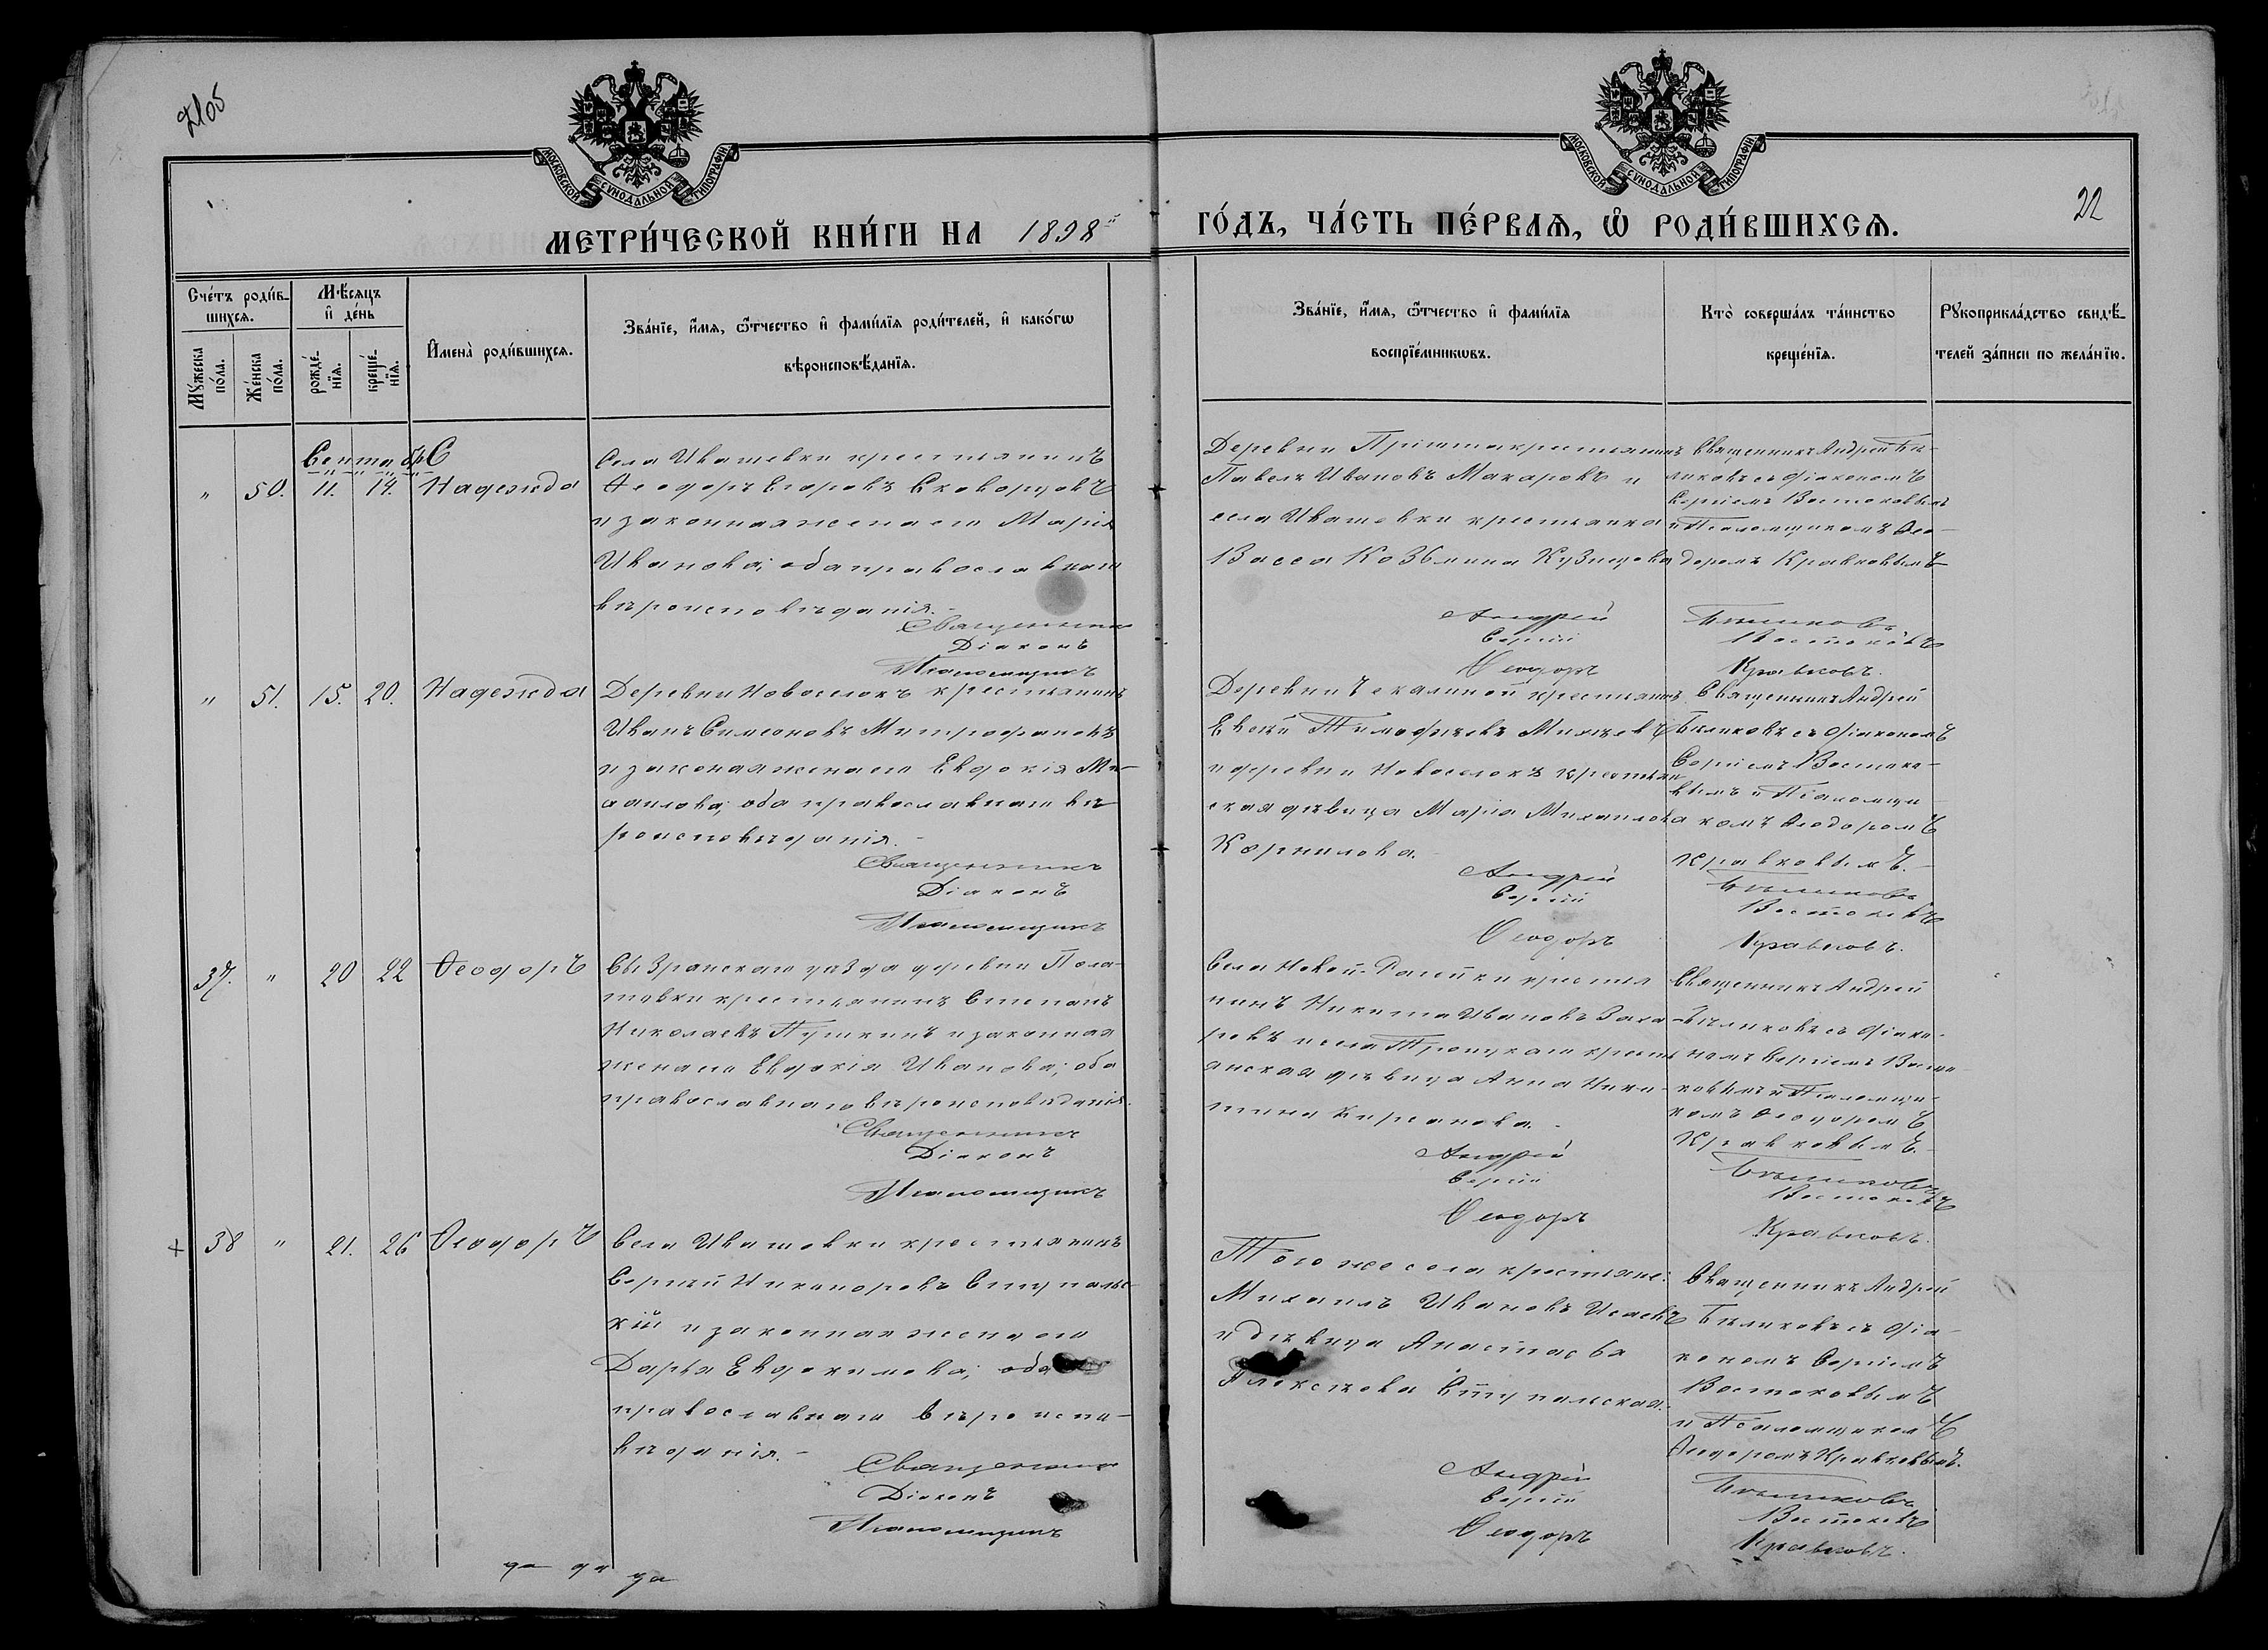 2105
МОСКОВСКОЙ СѴНОДАЛЬНОЙ ТИПОГРАФІИ
МОСКОВСКОЙ СѴНОДАЛЬНОЙ ТИПОГРАФІИ
22
МЕТРИ́ЧЕСКОЙ КНИ́ГИ НА 1898й ГО́ДЪ, ЧА́СТЬ ПЕ́РВАѦ, Ѽ РОДИ́ВШИХСѦ.
Сче́тъ роди́в-
шихсѧ.
Мꙋ́жеска
по́ла.
Же́нска
по́ла.
Мѣ́сѧцъ
и҆ де́нь
рожде́-
нїѧ.
креще́-
нїѧ.
И҆мена̀ роди́вшихсѧ.
Зва́нїе, и҆́мѧ, ѻ҆́тчество и҆ фами́лїѧ роди́телей, и҆ како́гѡ
вѣроисповѣ́данїѧ.
Зва́нїе, и҆́мѧ, ѻ҆́тчество и҆ фами́лїѧ
воспрїе́мникѡвъ.
Кто̀ соверша́лъ та́инство
креще́нїѧ.
Рꙋкоприкла́дство свидѣ́-
телей за́писи по жела́нїю.
Сентябрь
" 50. 11. 14. Надежда
Села Ивашевки крестьянинъ
Ѳеодоръ Егоровъ Скворцовъ
и законная жена его Марія
Иванова; оба православнаго
вѣроисповѣданія.-
Священникъ
Діаконъ
Псаломщикъ
крестьянинъ
Павелъ Ивановъ Макаровъ и
села Ивашевки крестьянка
Васса Козьмина Кузнецова
Андрей
Сергій
Ѳеодоръ
Священникъ Андрей Бѣ-
ликовъ съ діакономъ
Сергіемъ Востоковымъ
и Псаломщикомъ Ѳео-
доромъ Кравковымъ
Бѣликовъ
Востоковъ
Кравковъ.
" 51. 15. 20. Надежда
Деревни Новоселокъ крестьянинъ
Иванъ Симеоновъ Митрофановъ
и законая жена его Евдокія Ми-
хаилова; оба православнаго вѣ-
роисповѣданія.-
Священникъ
Діаконъ
Псаломщикъ
Деревни Чекалиной крестьянинъ
Евсѣй Тимофѣевъ
и деревни Новоселокъ крестьян
ская дѣвица Марія Михаилова
Корнилова.
Андрей
Сергій
Ѳеодоръ
Священникъ Андрей
Бѣликовъ съ діакономъ
Сергіемъ Востоко-
вымъ и Псаломщи
комъ Ѳеодоромъ
Кравковымъ.-
Бѣликовъ
Востоковъ
Кравковъ.
37. " 20 22 Ѳеодоръ
Сызранскаго уѣзда деревни
крестьянинъ Степанъ
Николаевъ Пушкинъ и законная
жена его Евдокія Иванова; оба
православнаго вѣроисповѣданія.
Священникъ
Діаконъ
Псаломщикъ
Села Новой-Рачейки крестья
нинъ Никита Ивановъ Заха
ровъ и села Троицкаго кресть
янская дѣвица Анна Ники-
тина Кирсанова.-
Андрей
Сергій
Ѳеодоръ
Священникъ Андрей
Бѣликовъ съ діако-
номъ Сергіемъ Восто-
ковымъ и Псаломщи-
комъ Ѳеодоромъ
Кравковымъ.-
Бѣликовъ
Востоковъ
Кравковъ.
+ 38 " 21. 26 Ѳеодоръ
Села Ивашевки крестьянинъ
Сергѣй Никаноровъ Ступальс-
кій и законная жена его
Дарья Евдокимова; оба
православнаго вѣроиспо-
вѣданія.-
Священникъ
Діаконъ
Псаломщикъ
Того же села крестьяне:
Михаилъ Ивановъ Исаевъ
и дѣвица Анастасья
Алексѣева Ступальская.
Андрей
Сергій
Ѳеодоръ
Священникъ Андрей
Бѣликовъ съ діа-
кономъ Сергіемъ
Востоковымъ
и Псаломщикомъ
Ѳеодоромъ Кравковымъ.
Бѣликовъ
Востоковъ
Кравковъ.
да да да